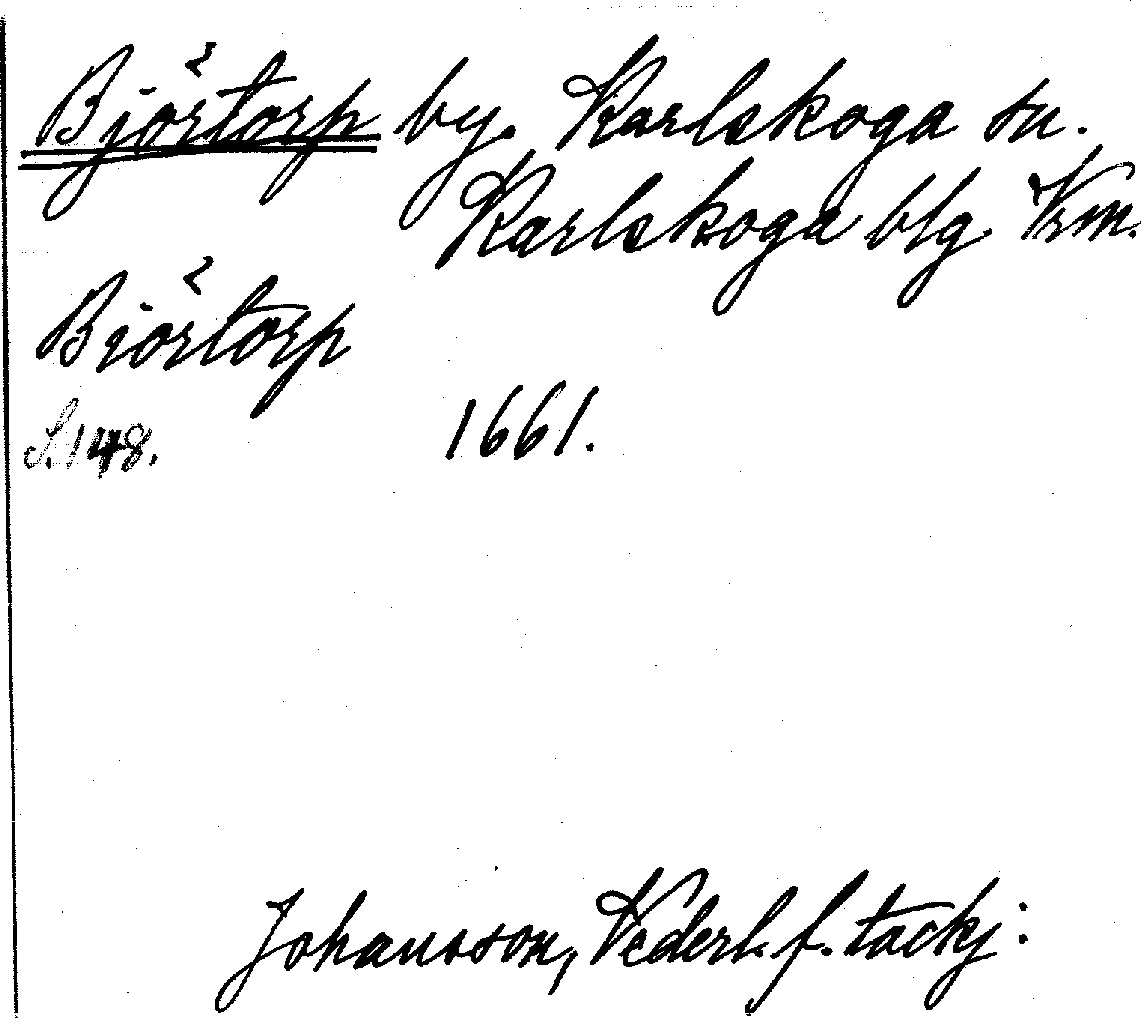 Björtorp by. Karlskoga sn.
Karlskoga blg Vrm.
Biörtorp
S.148. 1661.
Johansson, Vederl. f. tackj: